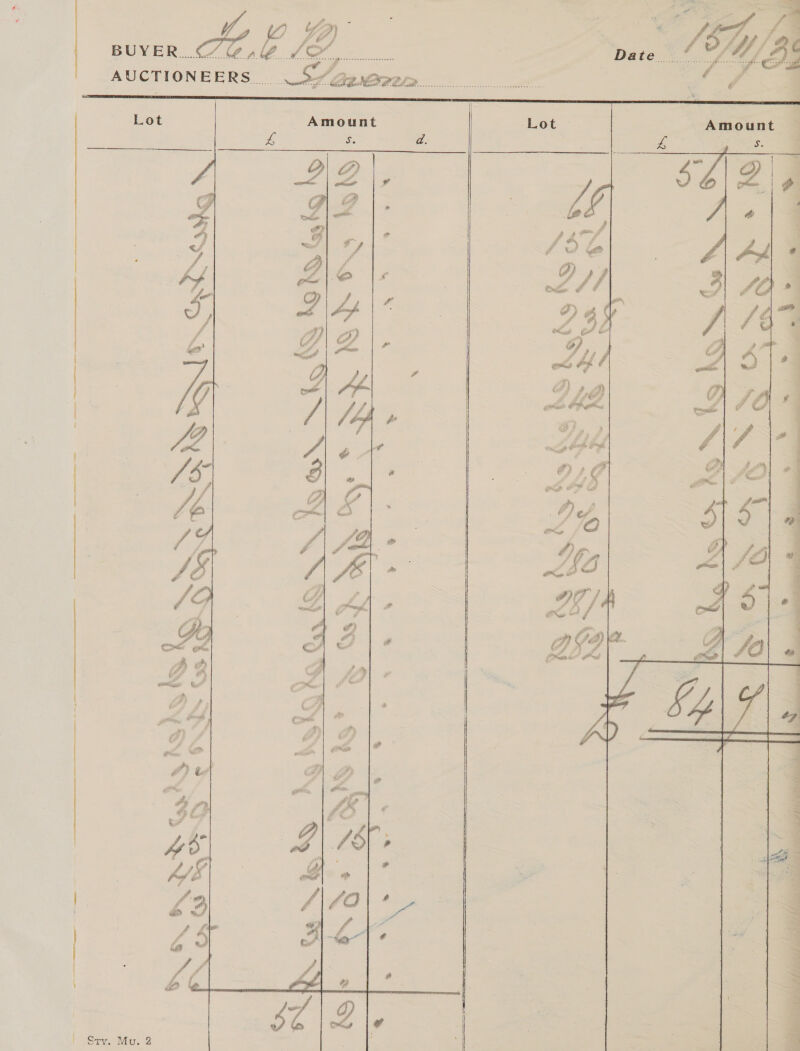 BUYER
Date 15/4/3
AUCTIONEERS Stevens
Lot Amount Lot Amount
£ s. d. £ s.
1 2 2 . 56 2 .
2 2 2 . 68 1 . .
3 3 . . 156 1 4 .
4 2 6 . 211 3 10 .
5 2 4 . 238 1 15 .
6 2 2 . 241 2 5 .
2 4 . 242 2 10 .
10 1 14 . 244 1 7 .
12 1 . . 248 2 10 .
15 3 . . 5 5 .
16 2 8 . 2 10 .
17 1 12 . 281A 2 5 .
18 1 18 . 282a 2 10 .
19 2 4 . £ 84 7 .
20 3 3 .
23 2 10 .
24 2 . .
26 2 2 .
27 2 2 .
30 18 .
45 2 15 .
48 2 . .
63 1 10 .
65 3 6 .
66 4 . .
56 2 .
Sty. Mu. 2